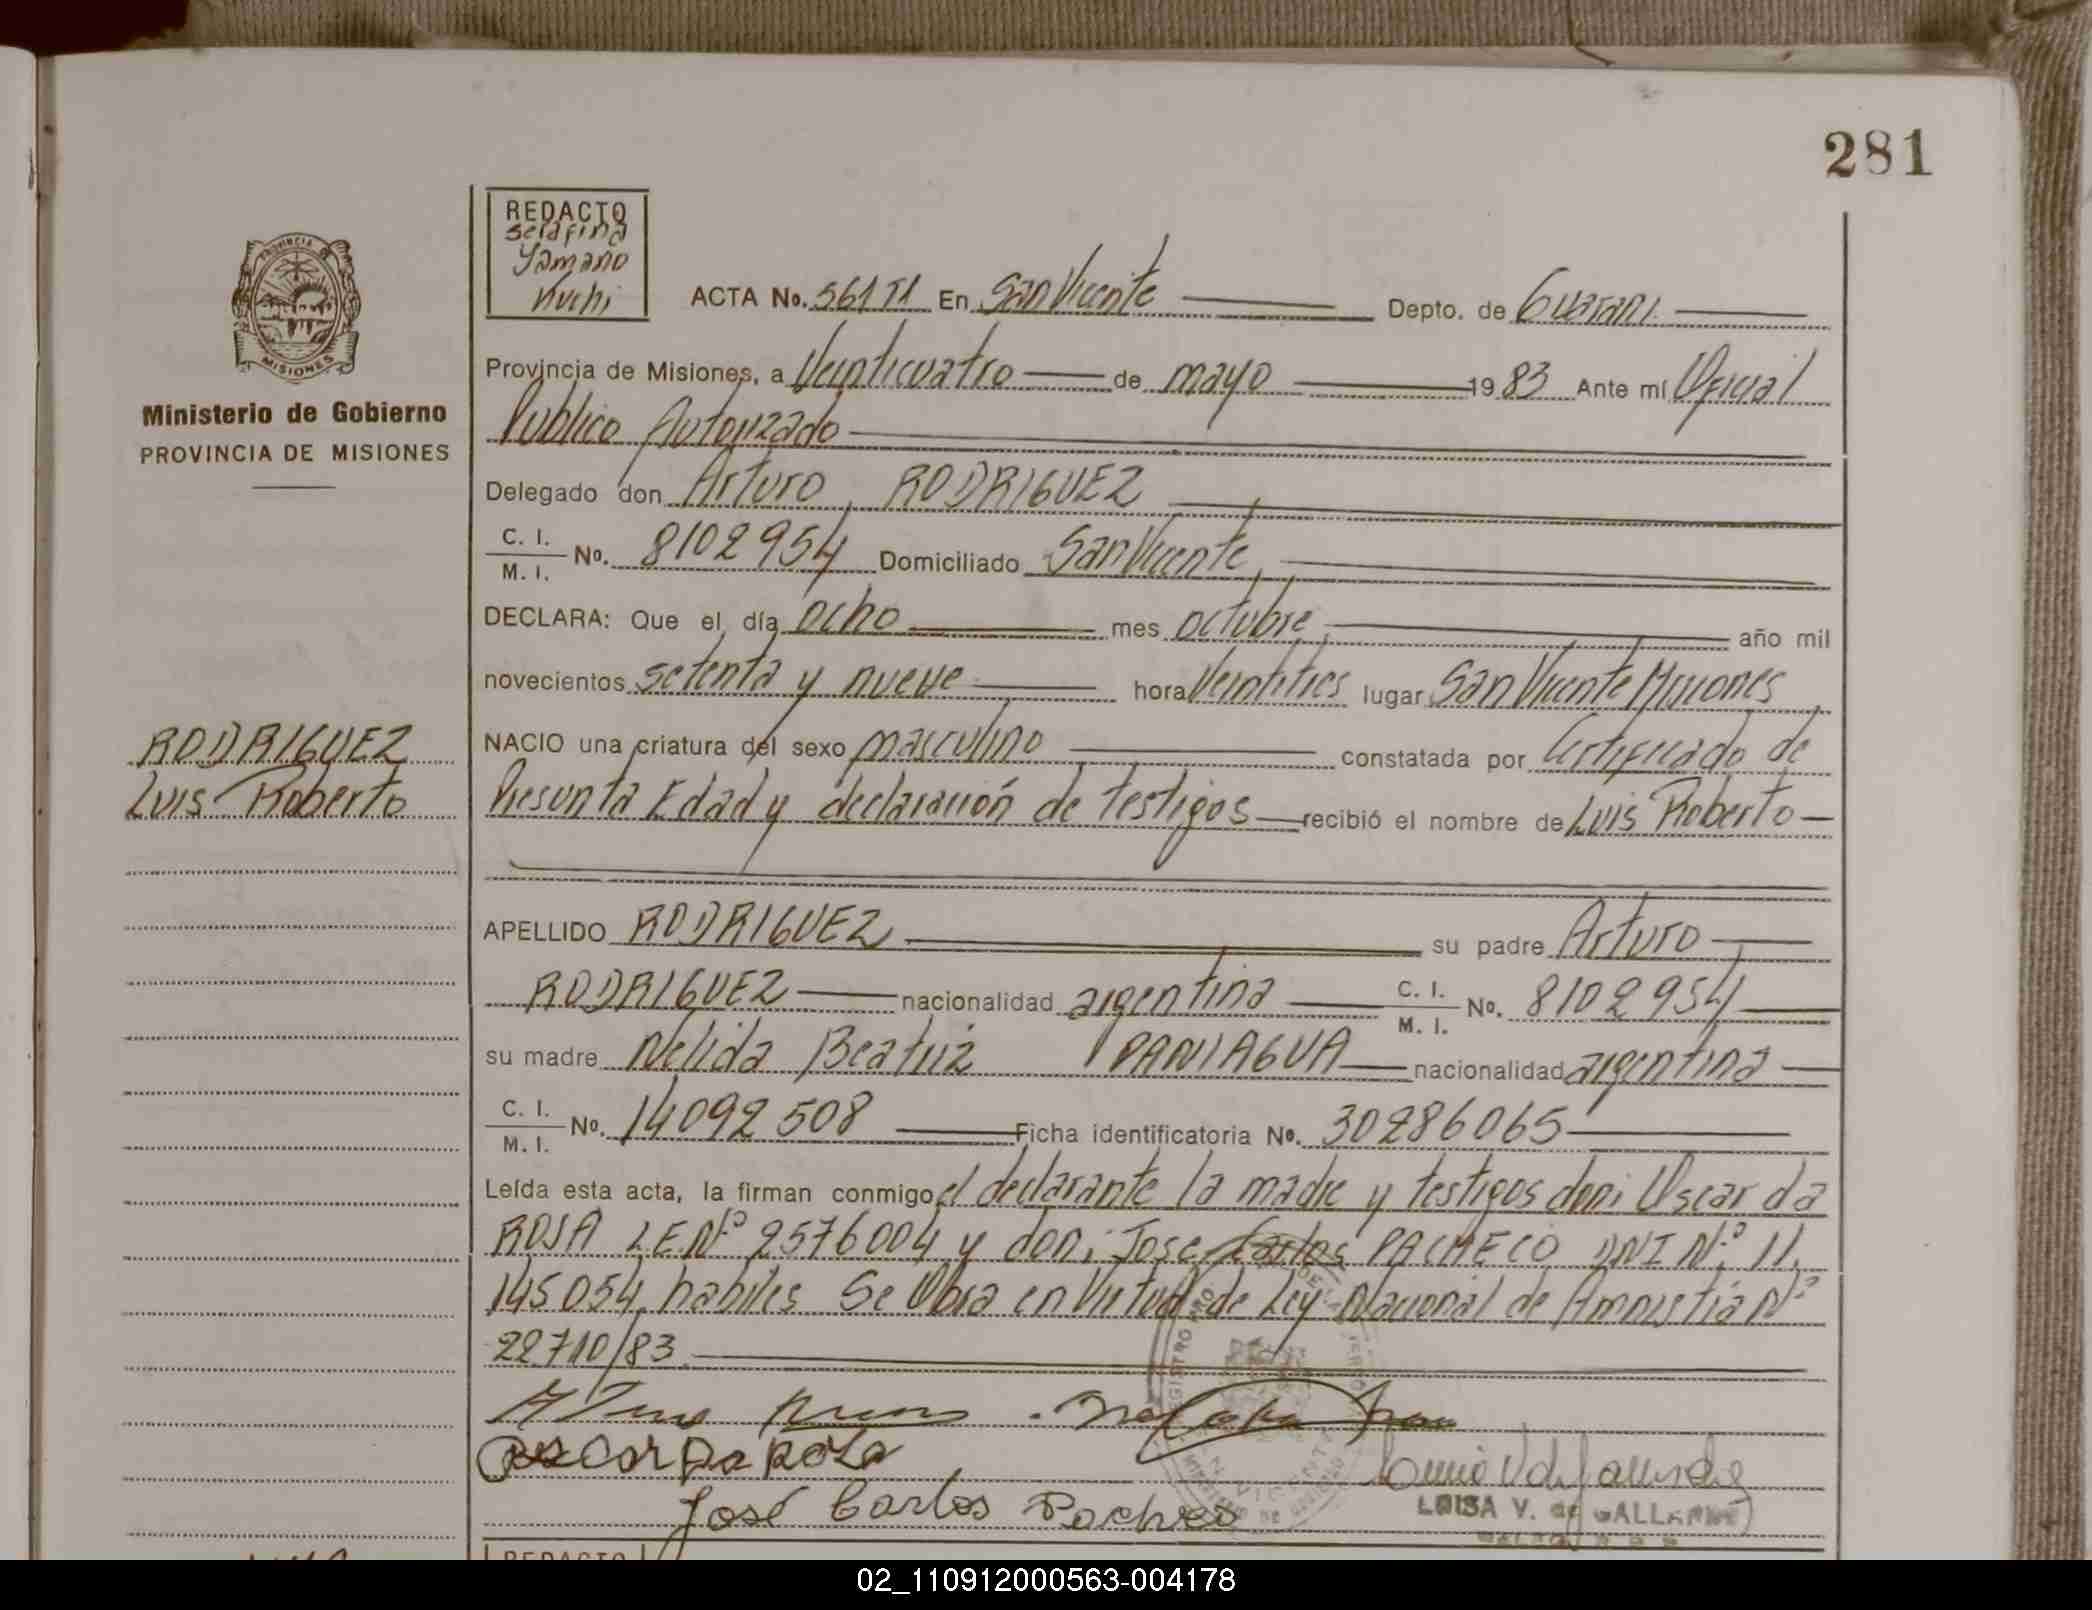 281
REDACTO
Serafina
Yamaño
Kuchi
PROVINCIA DE
MISIONES
Ministerio de Gobierno
PROVINCIA DE MISIONES
ACTA No. 561 T1 En San Vicente Depto. de Guarani
Provincia de Misiones, a Veinticuatro de mayo 1983 Ante mí Oficial
Publico Autorizado
Delegado don Arturo RODRIGUEZ
C. I. / M. I. No. 8102954 Domiciliado San Vicente
DECLARA: Que el día ocho mes octubre año mil
novecientos setenta y nueve hora Veintitres lugar San Vicente Misiones
RODRIGUEZ
Luis Roberto
NACIO una criatura del sexo masculino constatada por Certificado de
Presunta Edad y declaración de testigos recibió el nombre de Luis Roberto
APELLIDO RODRIGUEZ su padre Arturo
RODRIGUEZ nacionalidad argentina C. I. / M. I. No. 8102954
su madre Nelida Beatriz PANIAGUA nacionalidad argentina
C. I. / M. I. No. 14092508 Ficha identificatoria No. 30286065
Leída esta acta, la firman conmigo el declarante la madre y testigos don: Oscar da
ROSA L.E.Nº 2576004 y don: Jose Carlos PACHECO DNI Nº 11.
145054, habiles Se Obra en Virtud de Ley Nacional de Amnistia Nº
22710/83
Oscar Da ROSa
José Carlos Pacheco
LUISA V. de
REDACTO
02_110912000563-004178